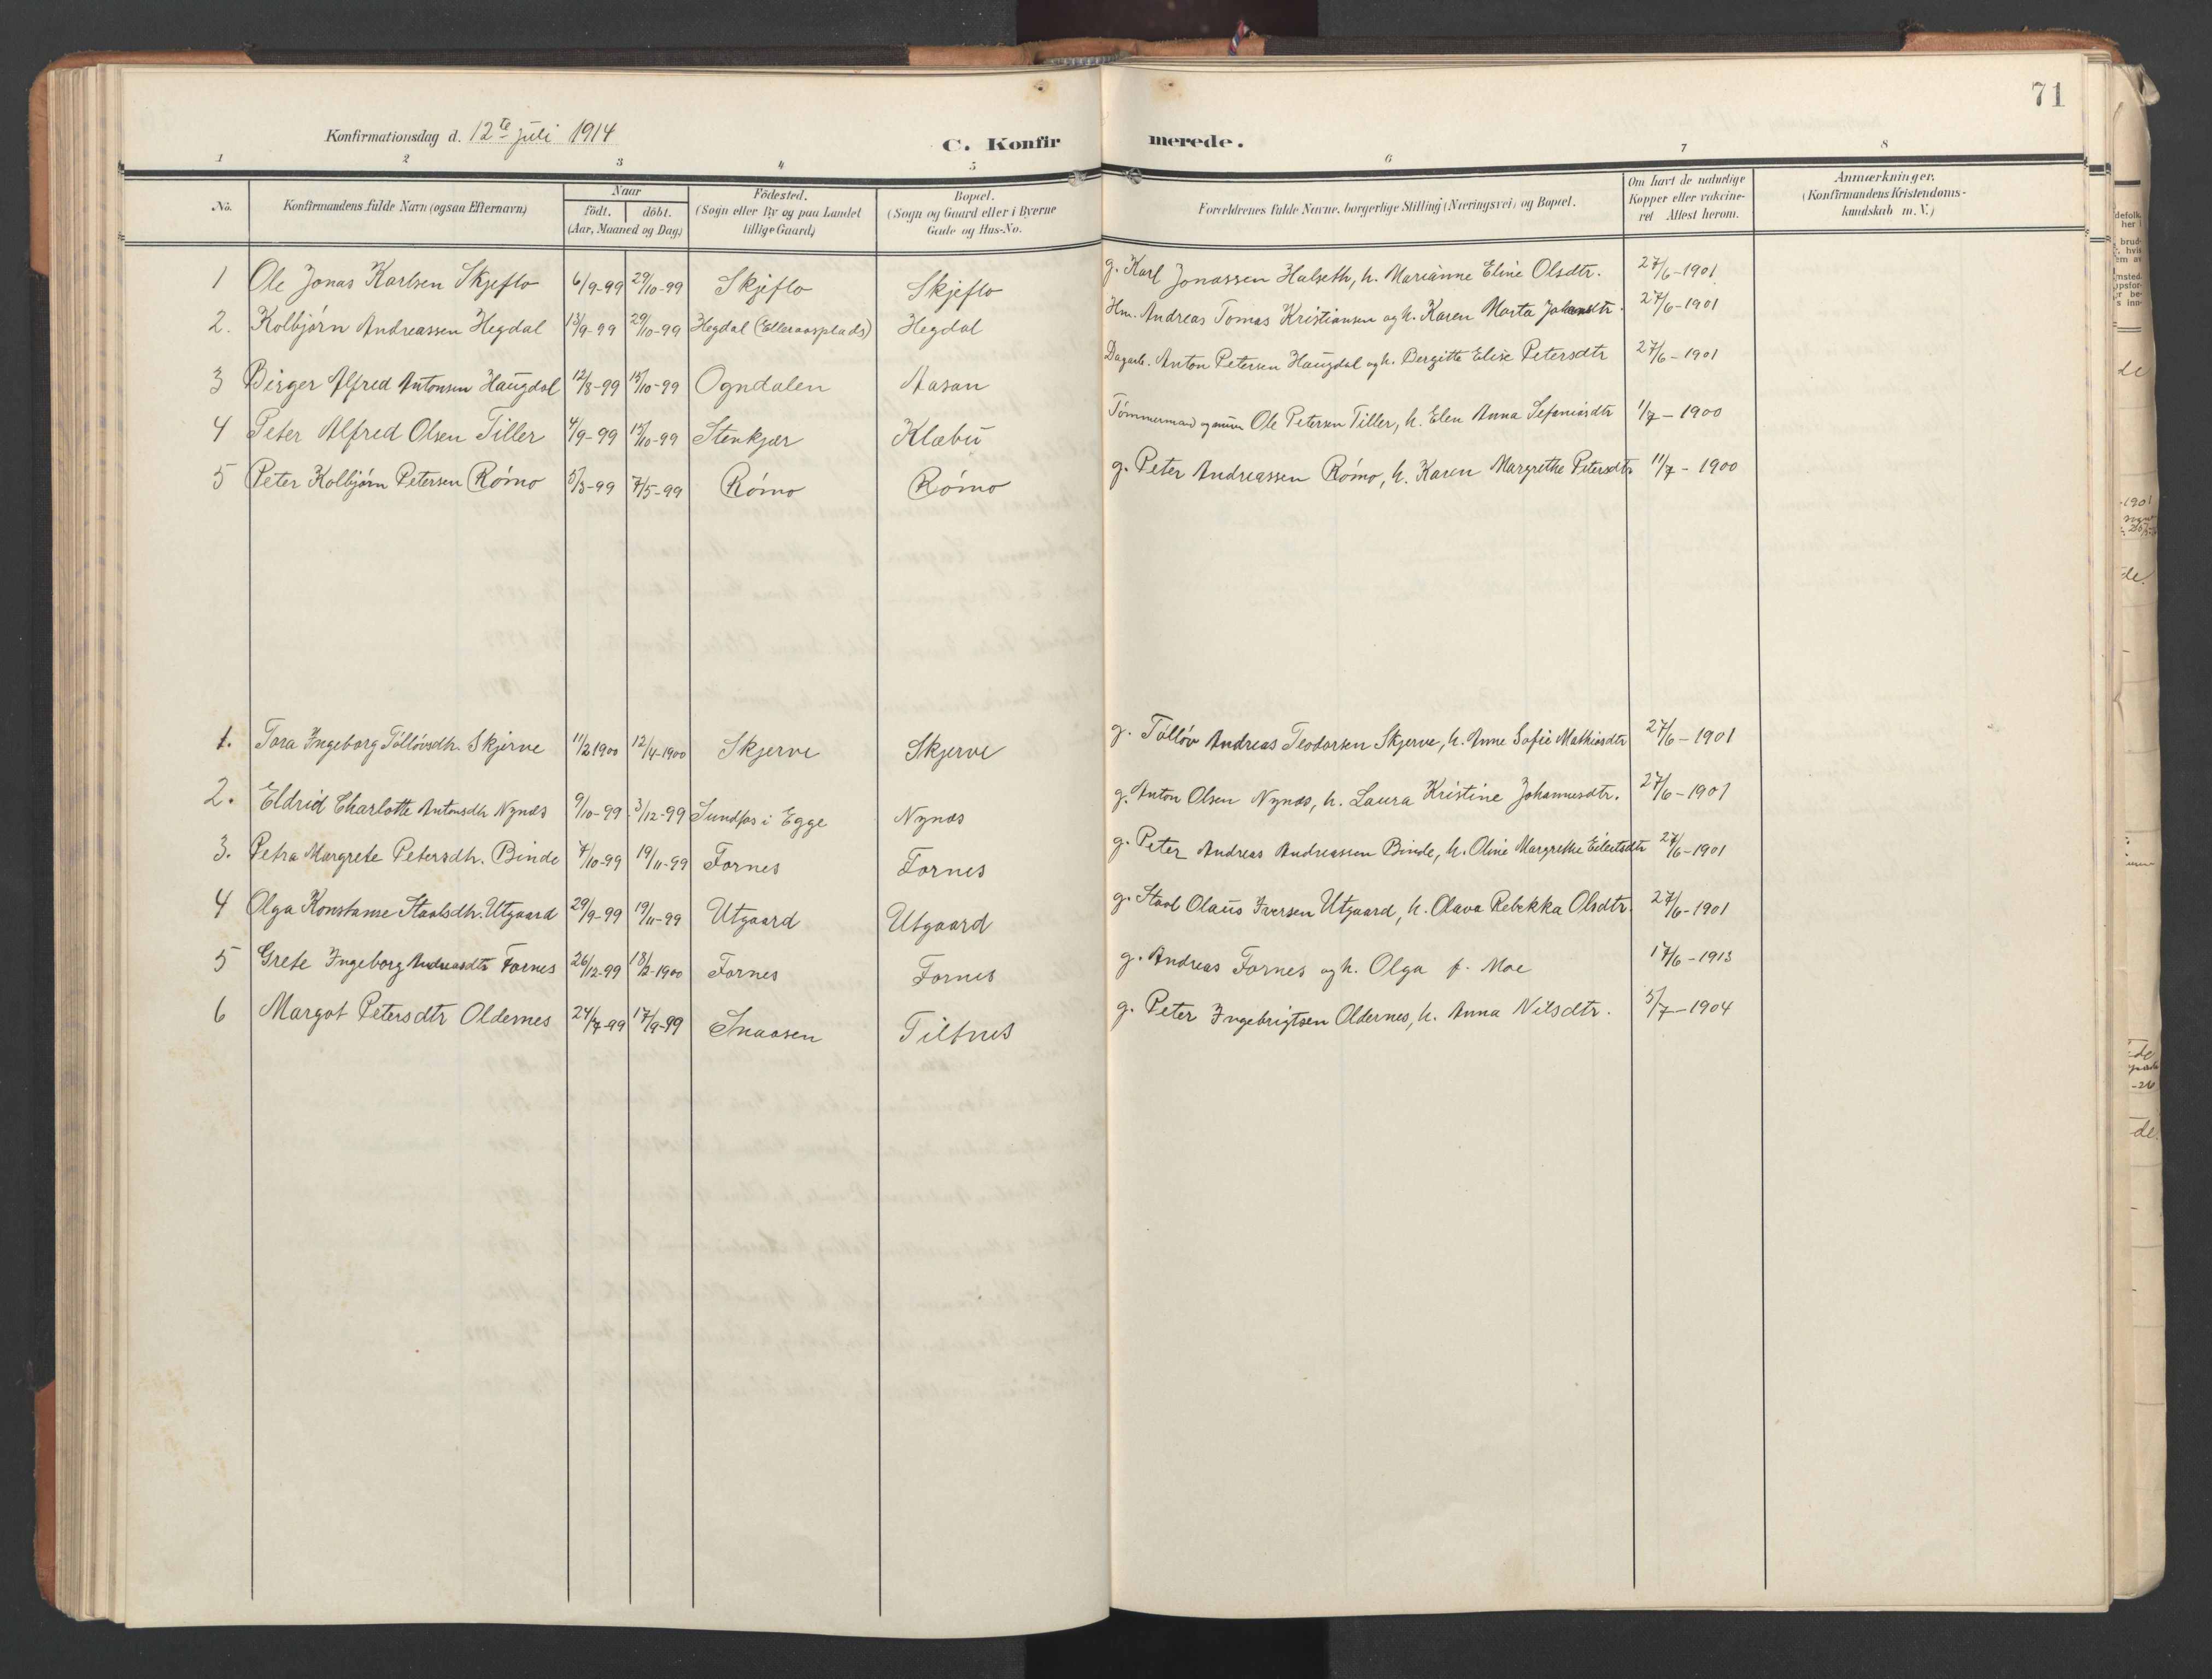 71
Konfirmationsdag d. 12te juli 1914
C. Konfirmerede.
1 2 3 4 5 6 7 8
No. Konfirmandens fulde Navn (ogsaa Efternavn) Naar födt. döbt. (Aar, Maaned og Dag.) Födested. (Sogn eller By og paa Landet tillige Gaard) Bopæl. (Sogn og Gaard eller i Byerne Gade og Hus-No. Forældrenes fulde Navne, borgerlige Stilling (Næringsvei) og Bopæl. Om havt de naturlige Kopper eller vakcineret Attest herom. Anmærkninger. (Konfirmandens Kristendomskundskab m. V.)
1 Ole Jonas Karlsen Skjeflo 6/9-99 29/10-99 Skjeflo Skjeflo g. Karl Jonassen Halseth, h. Marianne Eline Olsdtr. 27/6-1901
2. Kolbjørn Andreassen Hegdal 13/9-99 29/10-99 Hegdal (Elleraasplads) Hegdal Hm. Andreas Tomas Kristiansen og h. Karen Marta Johansdtr. 27/6-1901
3 Birger Alfred Antonsen Haugdal 12/8-99 15/10-99 Ogndalen Aasan Dagarb. Anton Petersen Haugdal og h. Bergitte Elise Petersdtr 27/6-1901
4 Peter Alfred Olsen Tiller 4/9-99 15/10-99 Stenkjær Klæbu Tømmermand Ole Petersen Tiller, h. Elen Anna Sefaniasdtr 1/7-1900
5 Peter Kolbjørn Petersen Rømo 5/3-99 7/5-99 Rømo Rømo g. Peter Andreassen Rømo, h. Karen Margrethe Petersdtr 11/7-1900
1. Tora Ingeborg Tølløvsdtr. Skjerve 11/2 1900 12/4-1900 Skjerve Skjerve g. Tølløv Andreas Teodorsen Skjerve, h. Anne Sofie Mathiasdtr 27/6-1901
2. Eldrid Charlotte Antonsdtr Nynæs 9/10-99 3/12-99 Sundfos i Egge Nynæs g. Anton Olsen Nynæs, h. Laura Kristine Johannesdtr. 27/6-1901
3. Petra Margrete Petersdtr. Binde 7/10-99 19/11-99 Fornes Fornes g. Peter Andreas Andreassen Binde, h. Oline Margrethe Eilertsdtr 27/6-1901
4 Olga Konstanse Staalsdtr. Utgaard 29/9-99 19/11-99 Utgaard Utgaard g. Staal Olaus Iversen Utgaard, h. Olava Rebekka Olsdtr. 27/6-1901
5 Grete Ingeborg Andreasdtr Fornes 26/12-99 18/2-1900 Fornes Fornes g. Andreas Fornes og h. Olga f. Moe 17/6-1913
6 Margot Petersdtr Oldernes 24/7-99 17/9-99 Snaasen Tiltnes g. Peter Ingebrigtsen Oldernes, h. Anna Nilsdtr. 5/7-1904